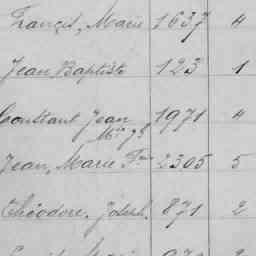 Francis, Marie 1637 4
Jean Baptiste 123 1
Constant Jean 1971 4
Jean, Marie Fois 2305 5
Théodore, Joseph. 871 2